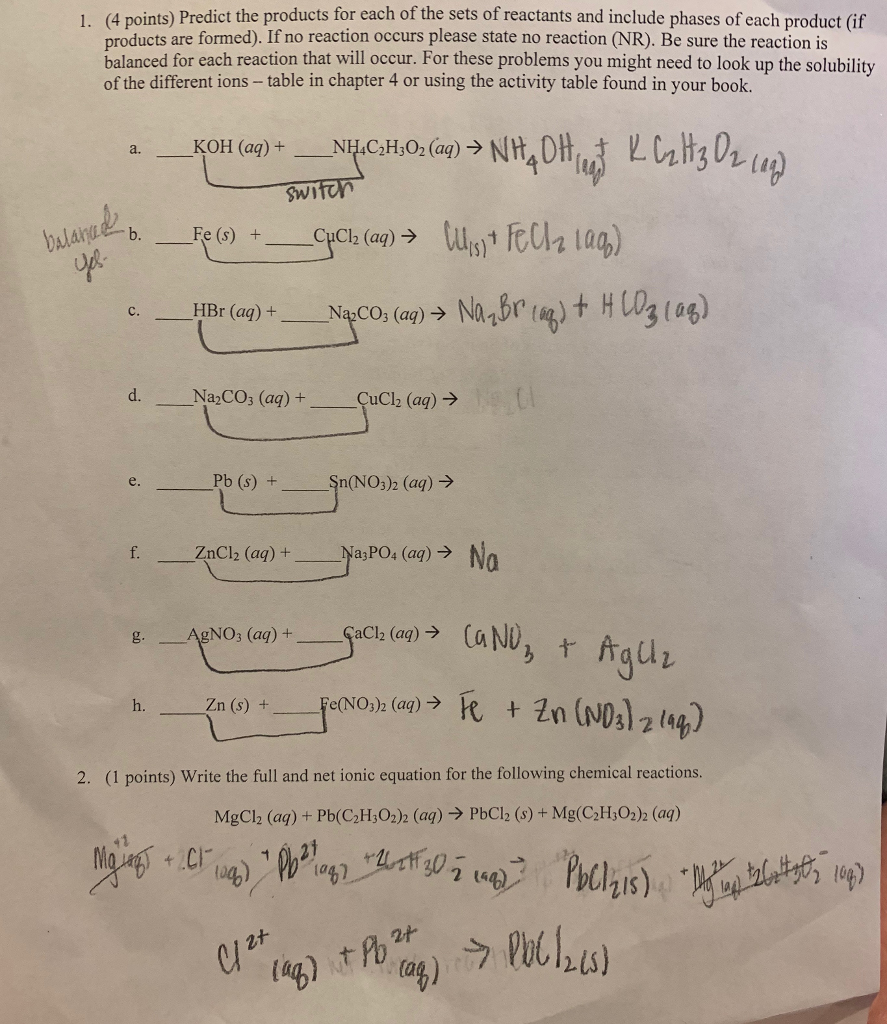 1. (4 points) Predict the products for each of the sets of reactants and include phases of each product (if
products are formed). If no reaction occurs please state no reaction (NR). Be sure the reaction is
balanced for each reaction that will occur. For these problems you might need to look up the solubility
of the different ions – table in chapter 4 or using the activity table found in your book.
a. ___KOH (aq) + ____NH₄C₂H₃O₂ (aq) → NH₄OH (aq) + KC₂H₃O₂ (aq)
switch
balanced
yes.
b. ____Fe (s) + _____CuCl₂ (aq) → Cu(s) + FeCl₂ (aq)
c. ____HBr (aq) + _____Na₂CO₃ (aq) → Na₂Br (aq) + HCO₃ (aq)
d. ____Na₂CO₃ (aq) + _____CuCl₂ (aq) → Cl
e. ______Pb (s) + _____Sn(NO₃)₂ (aq) →
f. ____ZnCl₂ (aq) + _____Na₃PO₄ (aq) → Na
g. ___AgNO₃ (aq) + _____CaCl₂ (aq) → CaNO₃ + AgCl₂
h. _____Zn (s) + _____Fe(NO₃)₂ (aq) → Fe + Zn(NO₃)₂ (aq)
2. (1 points) Write the full and net ionic equation for the following chemical reactions.
MgCl₂ (aq) + Pb(C₂H₃O₂)₂ (aq) → PbCl₂ (s) + Mg(C₂H₃O₂)₂ (aq)
Mg⁺² (aq) + Cl⁻ (aq) + Pb²⁺ (aq) + 2C₂H₃O₂⁻ (aq) → PbCl₂(s) + Mg²⁺ (aq) + 2C₂H₃O₂⁻ (aq)
Cl²⁺ (aq) + Pb²⁺ (aq) → PbCl₂(s)